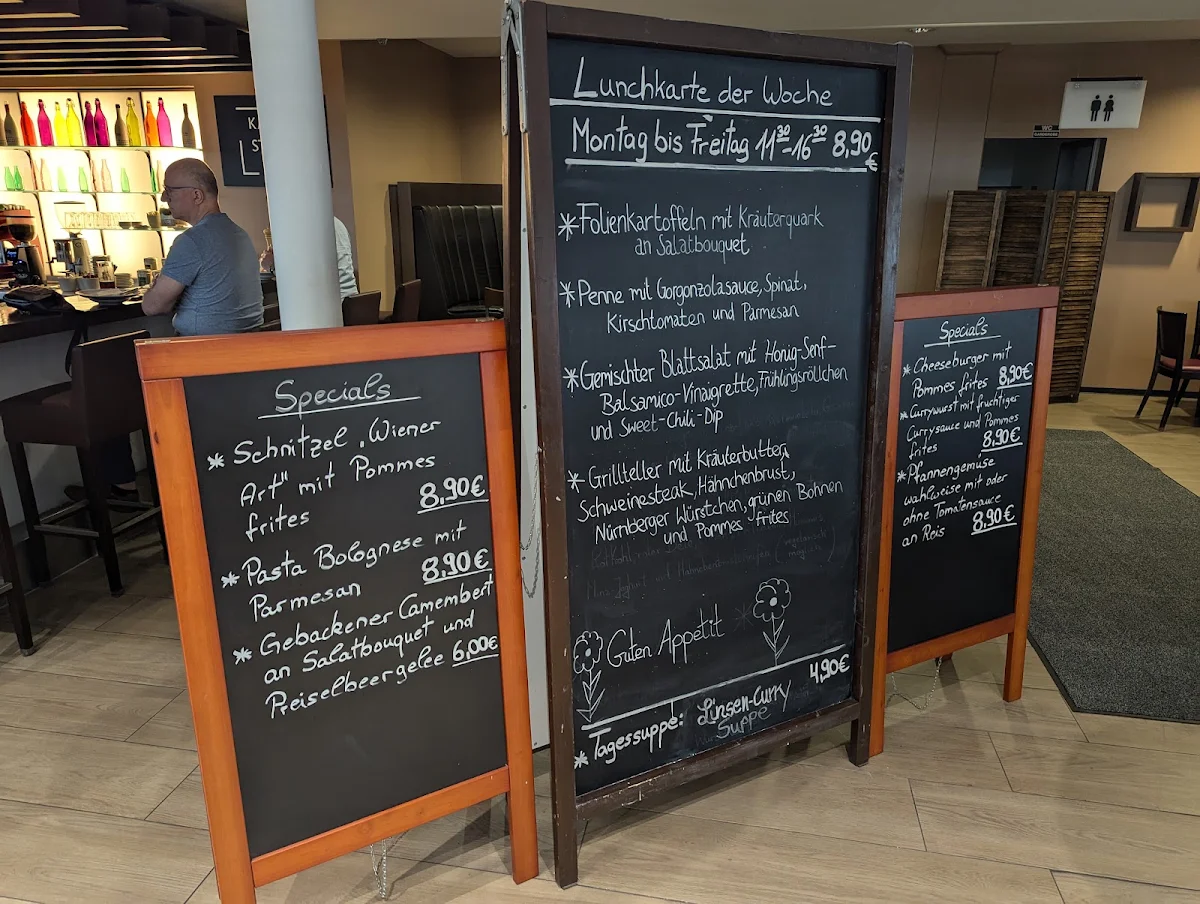 Specials
* Schnitzel „Wiener
Art" mit Pommes
frites 8,90€
* Pasta Bolognese mit
Parmesan 8,90€
* Gebackener Camembert
an Salatbouquet und
Preiselbeergelee 6,00€
Lunchkarte der Woche
Montag bis Freitag 11³⁰-16³⁰ 8,90€
* Folienkartoffeln mit Kräuterquark
an Salatbouquet
* Penne mit Gorgonzolasauce, Spinat,
Kirschtomaten und Parmesan
* Gemischter Blattsalat mit Honig-Senf-
Balsamico-Vinaigrette, Frühlingsröllchen
und Sweet-Chili-Dip
* Grillteller mit Kräuterbutter,
Schweinesteak, Hähnchenbrust,
Nürnberger Würstchen, grünen Bohnen
und Pommes frites
Guten Appetit
4,90€
* Tagessuppe: Linsen-Curry
Suppe
Specials
* Cheeseburger mit
Pommes frites 8,90€
* Currywurst mit fruchtiger
Currysauce und Pommes
frites 8,90€
* Pfannengemüse
wahlweise mit oder
ohne Tomatensauce
an Reis 8,90€
WC